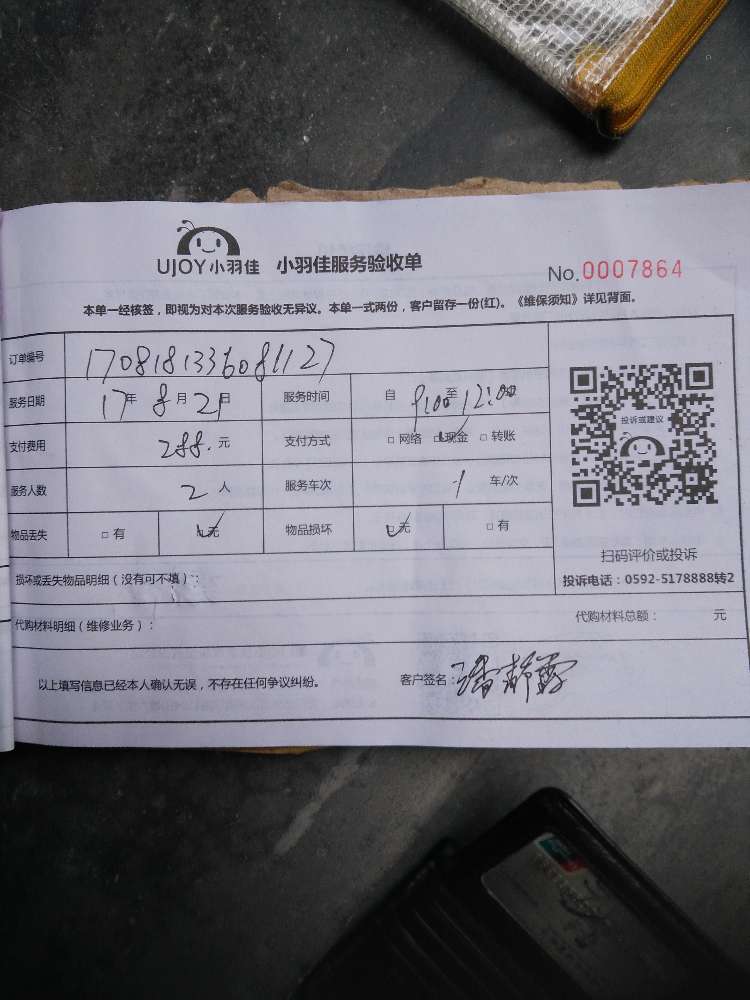 UJOY小羽佳 小羽佳服务验收单 No.0007864
本单一经核签，即视为对本次服务验收无异议。本单一式两份，客户留存一份(红)。《维保须知》详见背面。
订单编号 1708181336081127
服务日期 17年8月21日 服务时间 自9:00至12:00
支付费用 288.元 支付方式 □网络 ☑现金 □转账
投诉或建议
服务人数 2人 服务车次 1 车/次
物品丢失 □有 ☑无 物品损坏 ☑无 □有
扫码评价或投诉
投诉电话：0592-5178888转2
损坏或丢失物品明细（没有可不填）：
代购材料明细（维修业务）： 代购材料总额： 元
以上填写信息已经本人确认无误，不存在任何争议纠纷。 客户签名：潘静霞